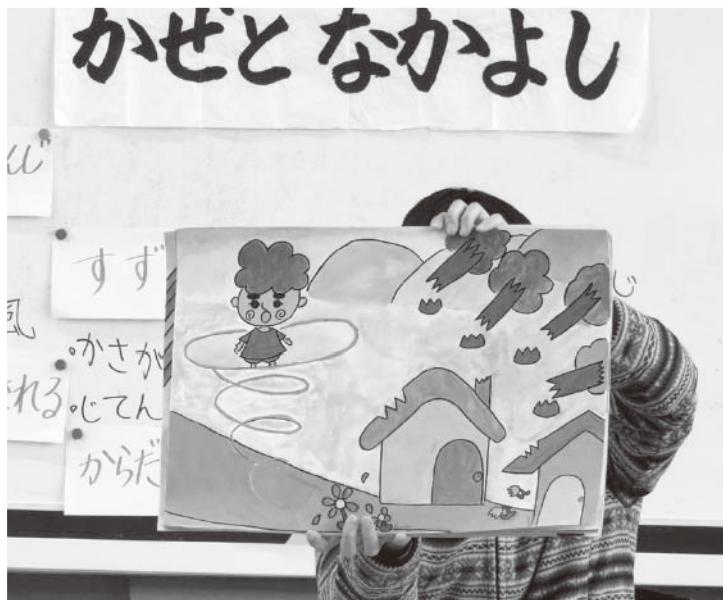 かぜと なかよし
んじ
すず
風
かさが
される
じてん
からだ
じ